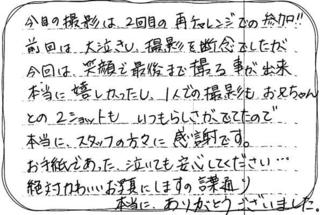 今日の撮影は、2回目の再チャレンジでの参加!!
前回は、大泣きし、撮影を断念でしたが
今回は、笑顔で最後まで撮る事が出来
本当に嬉しかったし、1人での撮影も、お兄ちゃん
との2ショットも いつもらしさがでてたので
本当に、スタッフの方々に感謝です。
お手紙であった、泣いても安心してください…
絶対かわいいお顔にしますの言葉通り
本当に、ありがとうございました。